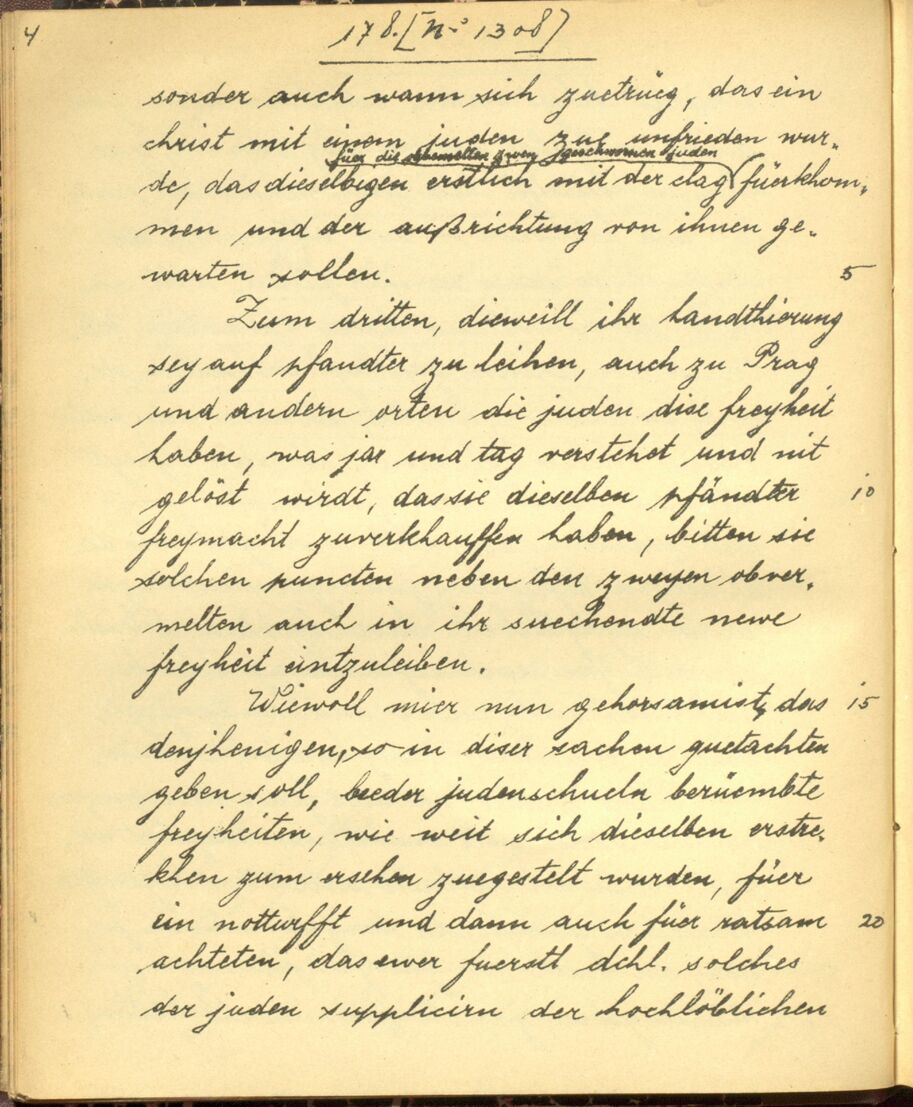 4
178. [N-o 1308]
sonder auch wann sich zuetrüeg, das ein
christ mit einem juden zue unfrieden wur„
für die obemelten zwen geschwornen juden
de, das dieselbigen erstlich mit der clag füerkhom„
men und der außrichtung von ihnen ge„
warten sollen. 5
Zum dritten, dieweill ihr handthierung
sey auf pfandter zu leihen, auch zu Prag
und andern orten die juden dise freyheit
haben, was jar und tag verstehet und nit
gelöst wirdt, das sie dieselben pfändter 10
freymacht zuverkhauffen haben, bitten sie
solchen puncten neben den zweyen obver„
melten auch in ihr suechendte newe
freyheit eintzuleiben.
Wiewoll mier nun gehorsamist, das 15
denjhenigen, so in diser sachen guetachten
geben soll, beeder judenschueln berüembte
freyheiten, wie weit sich dieselben erstre„
khen zum ersehen zuegestelt wurden, füer
ein notturfft und dann auch füer ratsam 20
achteten, das ewer fuerstl dchl. solches
der juden supplicirn der hochlöblichen